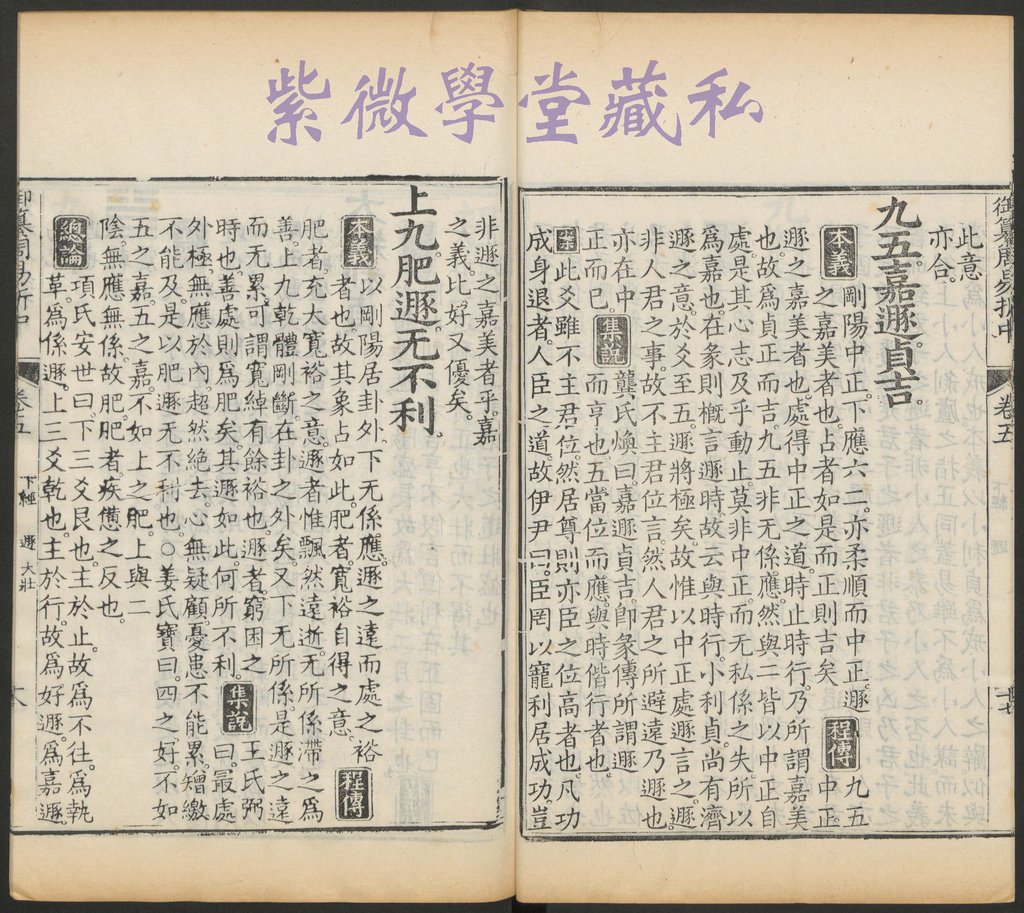 紫微學堂藏私
御纂周易折中
卷五
此意
亦合。
九五嘉遯貞吉。
本義
剛陽中正。下應六二。亦柔順而中正。遯
之嘉美者也。占者如是而正則吉矣
程傳
九五
中正
遯之嘉美者也。處得中正之道。時止時行。乃所謂嘉美
也。故爲貞正而吉。九五非无係應。然與二皆以中正自
處。是其心志及乎動止。莫非中正。而无私係之失。所以
爲嘉也。在彖則概言遯時。故云與時行。小利貞。尚有濟
遯之意。於爻至五。遯將極矣。故惟以中正處遯言之。遯
非人君之事。故不主君位言。然人君之所避遠乃遯也。
亦在中
正而已。
集說
龔氏煥曰。嘉遯貞吉。卽彖傳所謂遯
而亨也。五當位而應。與時偕行者也。
案
此爻雖不主君位。然居尊則亦臣之位高者也。凡功
成身退者。人臣之道。故伊尹曰。臣罔以寵利居成功。豈
非遯之嘉美者乎。嘉
之義。比好又優矣。
上九肥遯。无不利。
本義
以剛陽居卦外。下无係應。遯之遠而處之裕
者也。故其象占如此。肥者。寬裕自得之意。
程傳
肥者。充大寬裕之意。遯者惟飄然遠逝。无所係滯之爲
善。上九乾體剛斷。在卦之外矣。又下无所係。是遯之遠
而无累。可謂寬綽有餘裕也。遯者。窮困之
時也。善處則爲肥矣。其遯如此。何所不利。
集說
王氏弼
曰。最處
外極。無應於內。超然絕去。心無疑顧。憂患不能累。矰繳
不能及。是以肥遯无不利也。○姜氏寶曰。四之好不如
五之嘉。五之嘉。不如上之肥。上與二
陰。無應無係。故肥。肥者疾憊之反也。
總論
項氏安世曰。下三爻艮也。主於止。故爲不往。爲執
革。爲係遯。上三爻乾也。主於行。故爲好遯。爲嘉遯。
御纂周易折中
卷五
下經
遯
大壯